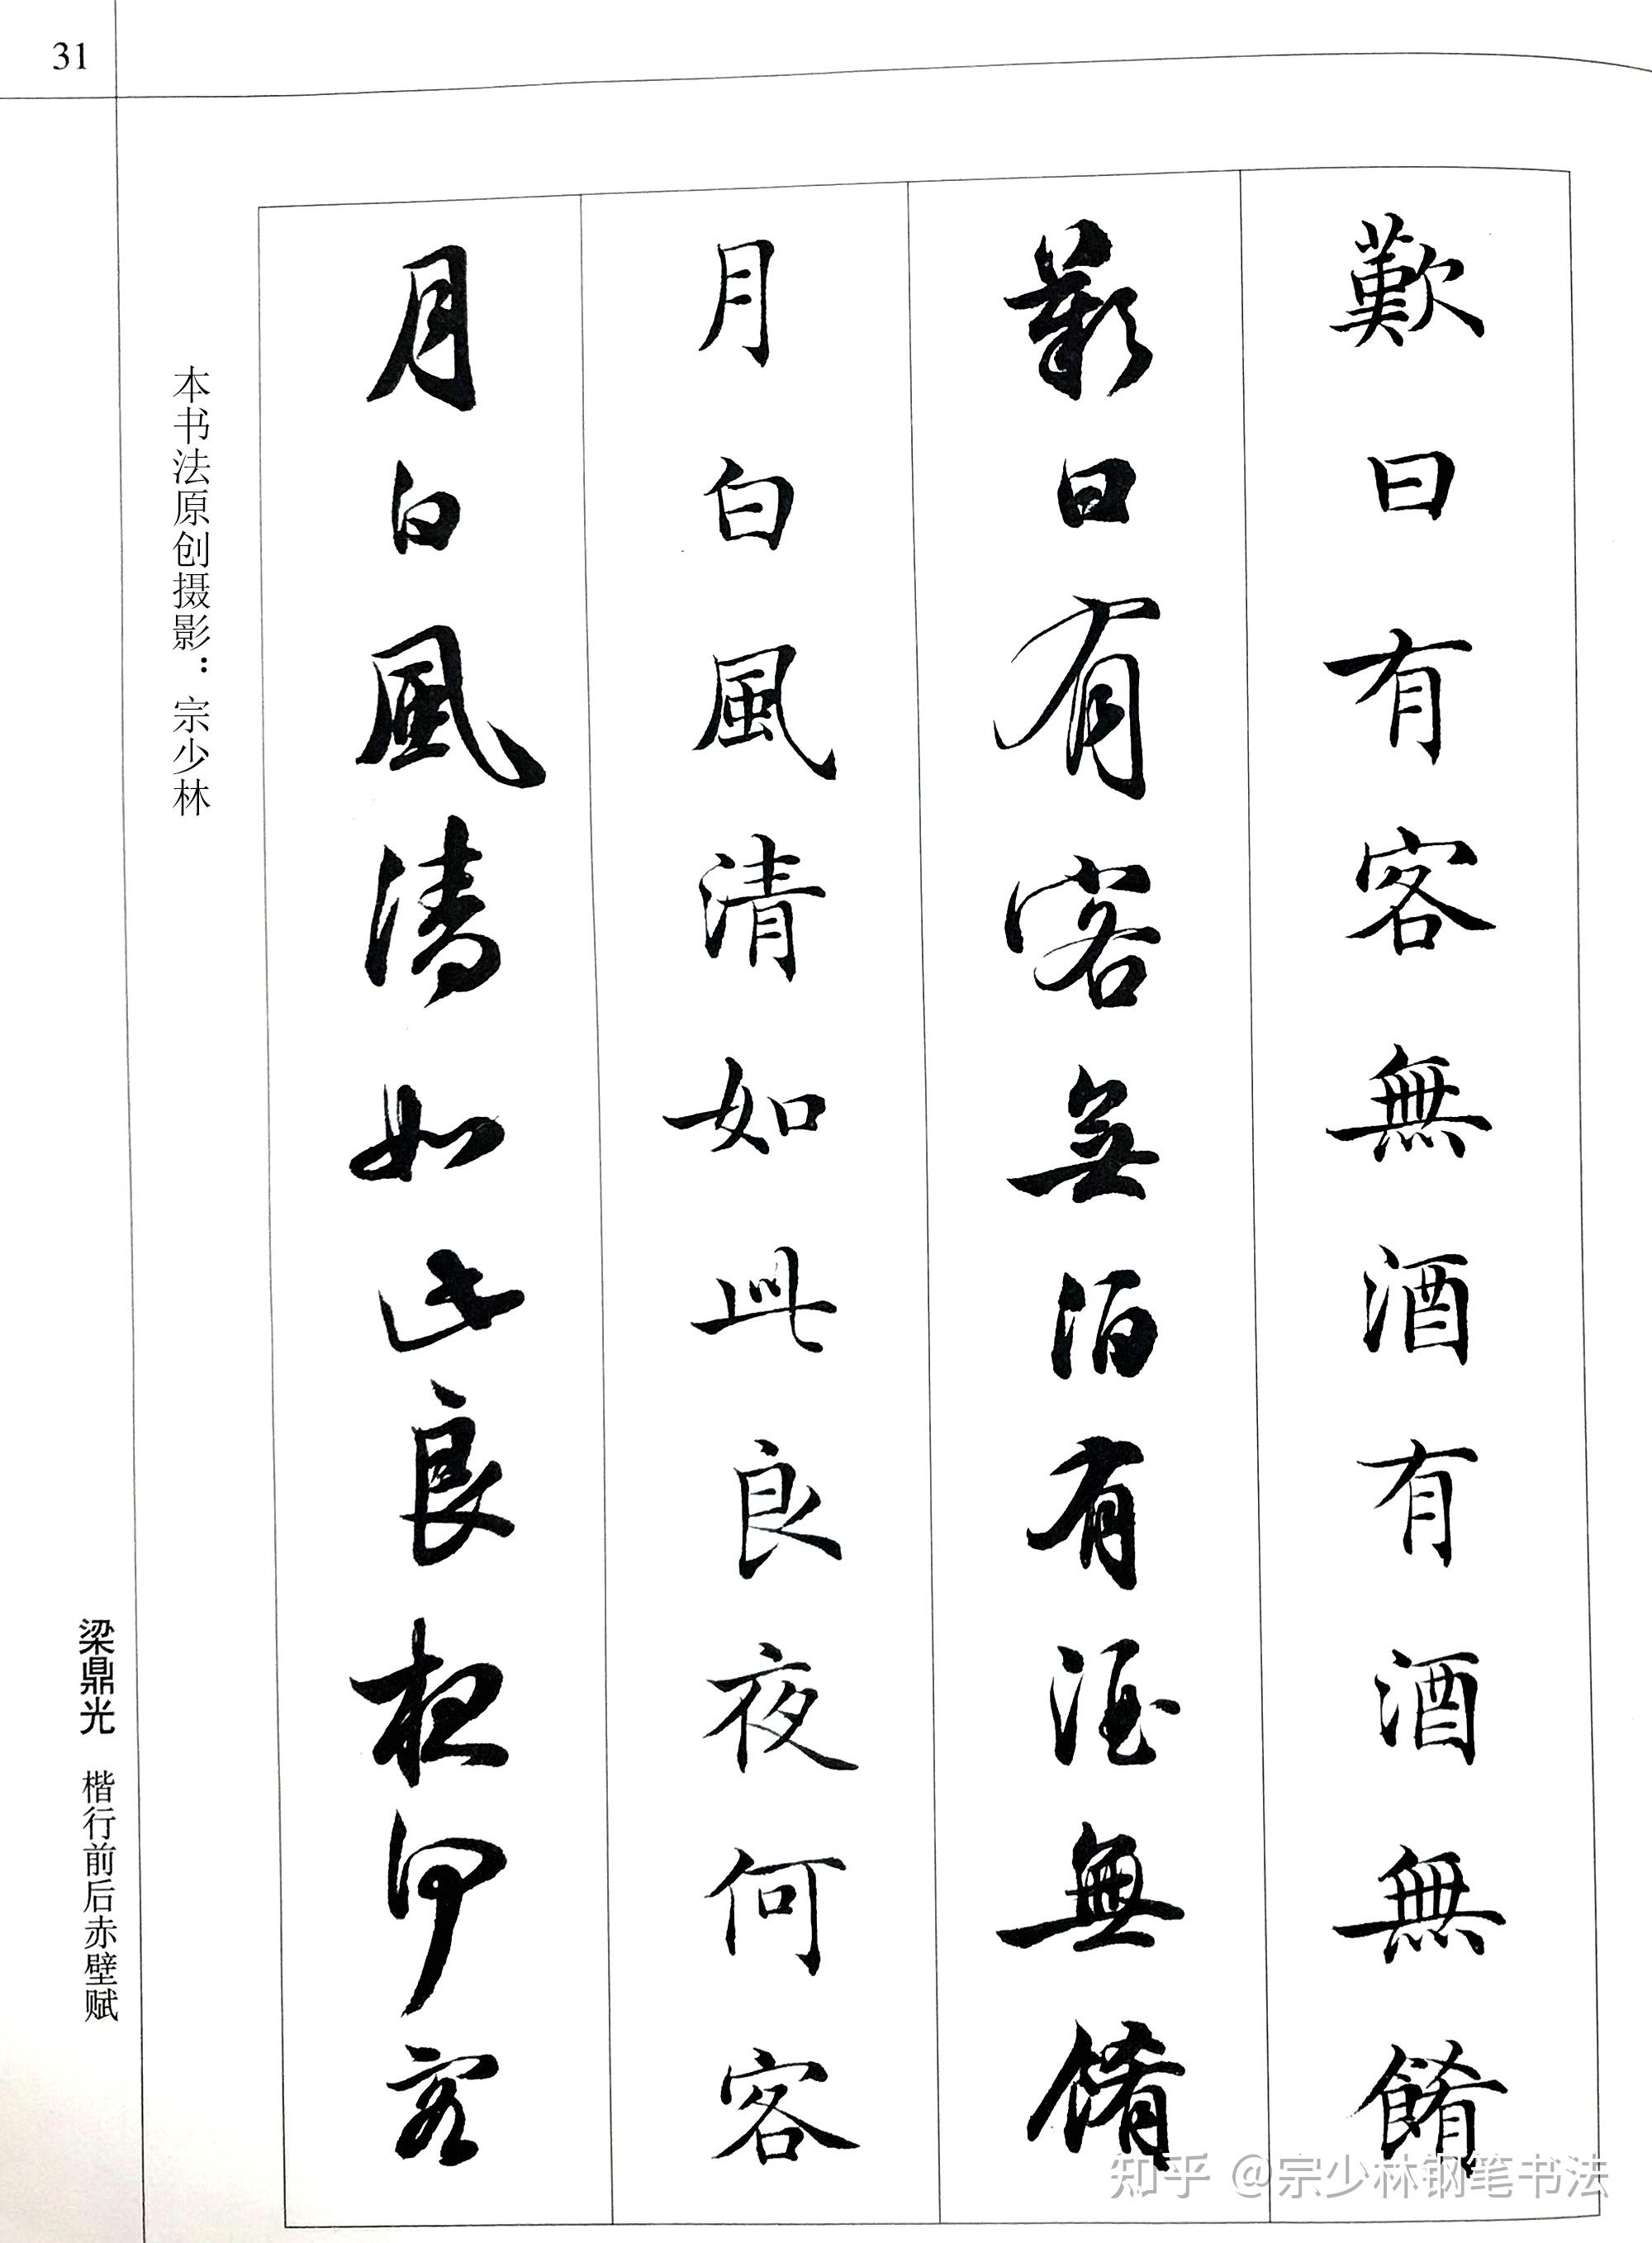 31
歎曰有客無酒有酒無餚
歎曰有客無酒有酒無餚
月白風清如此良夜何客
月白風清如此良夜何客
本书法原创摄影：宗少林
梁鼎光 楷行前后赤壁赋
知乎 @宗少林钢笔书法